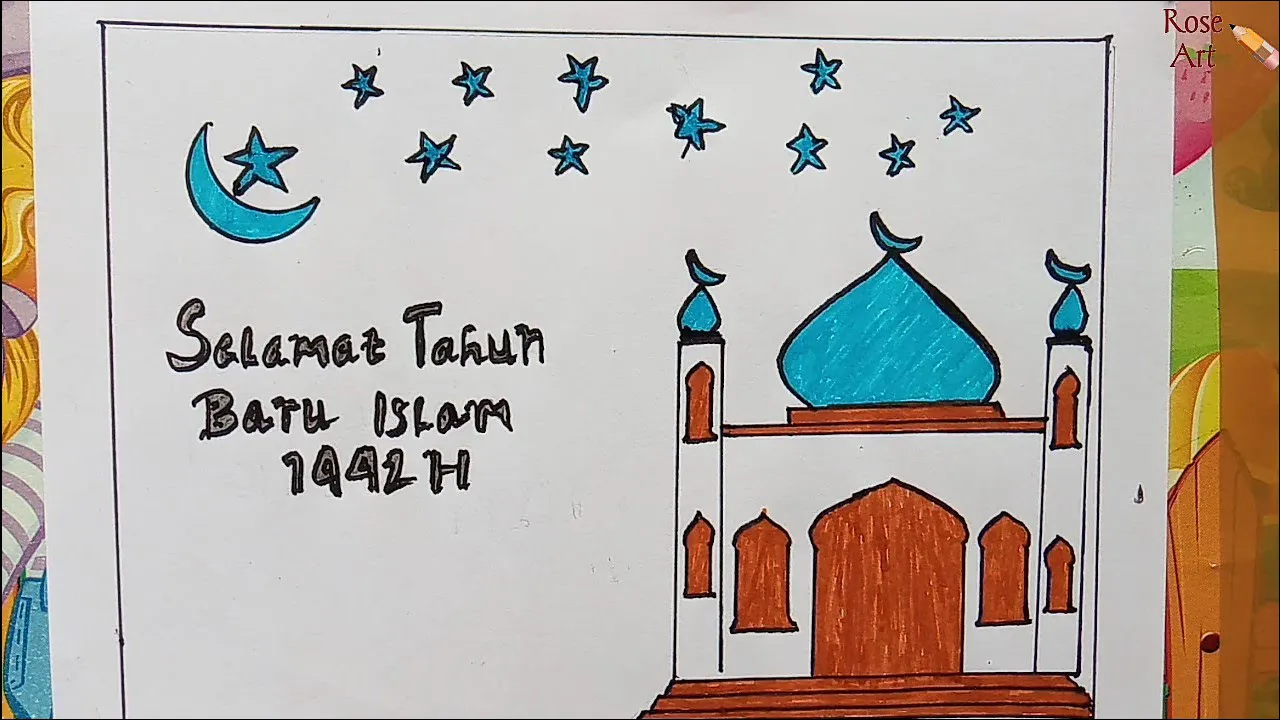 Rose
Art
Selamat Tahun
Baru Islam
1442 H